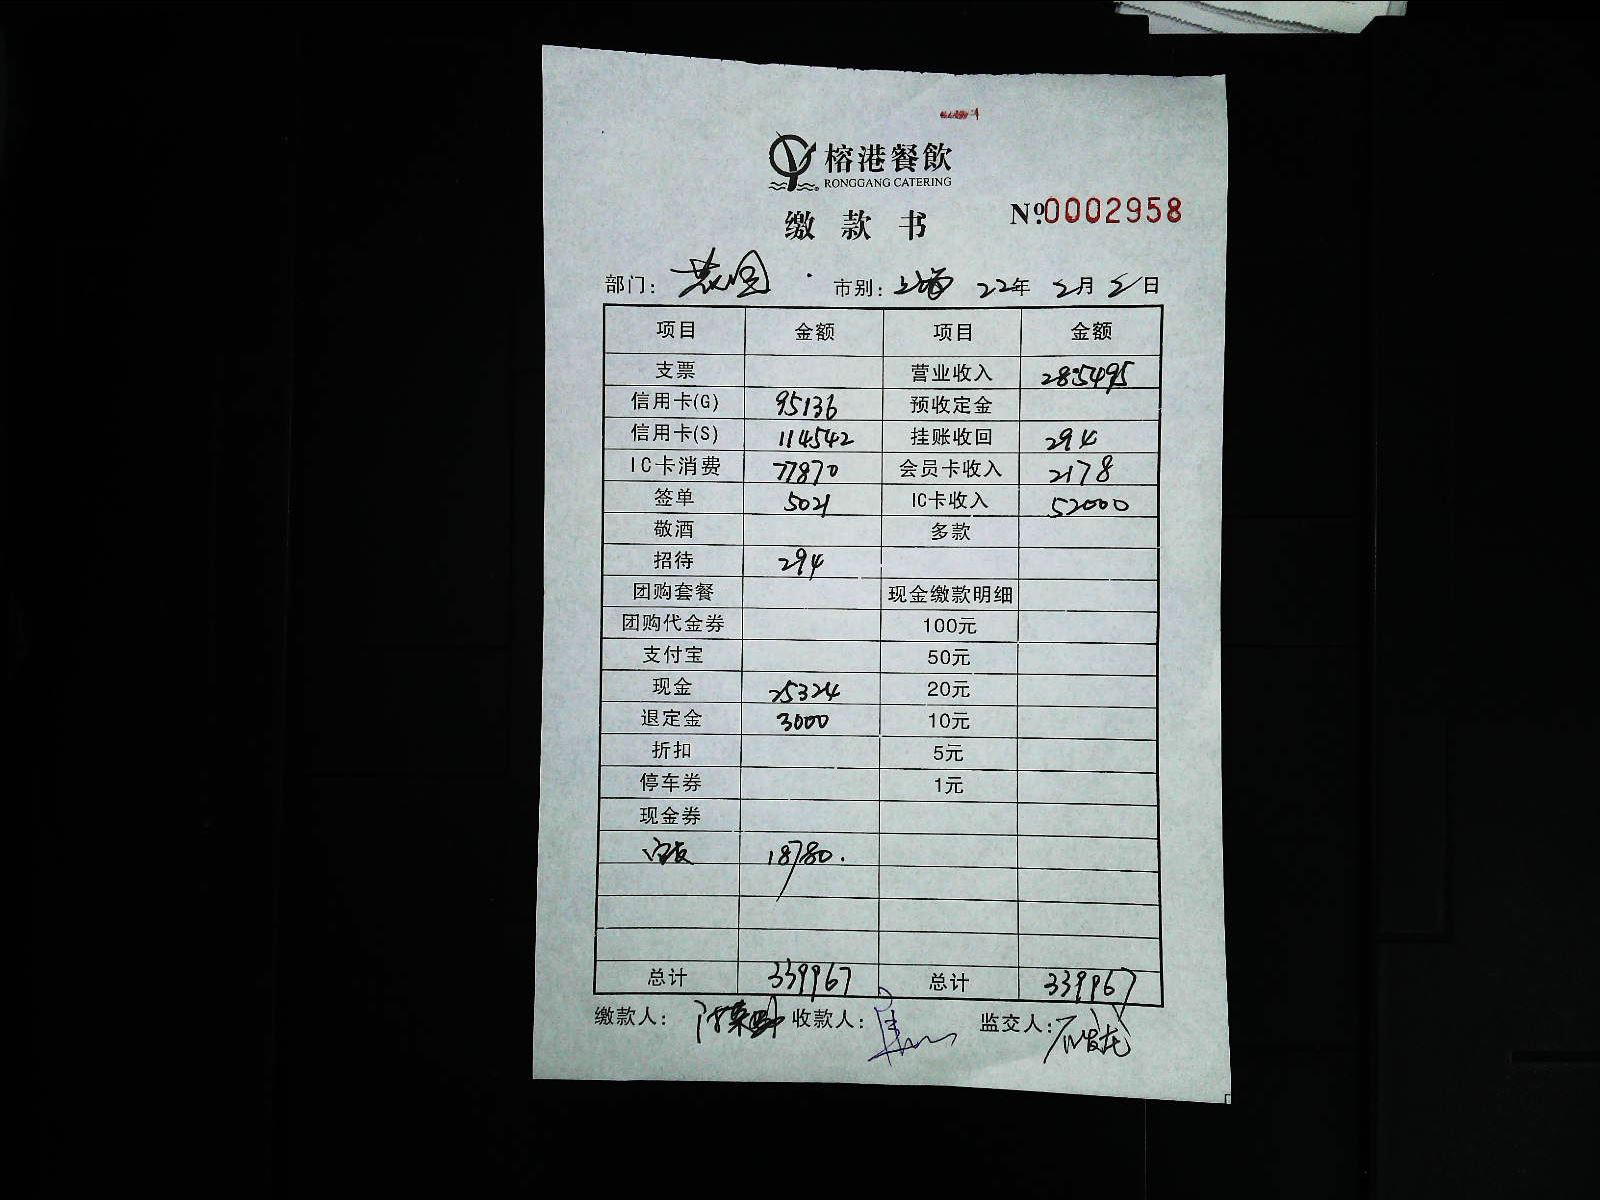 榕港餐飲
RONGGANG CATERING
缴款书
Nº.0002958
部门: 市别: 上海 22年 2月 2日
项目 金额 项目 金额
支票 营业收入 285495
信用卡(G) 95136 预收定金
信用卡(S) 114542 挂账收回 294
IC卡消费 77870 会员卡收入 2178
签单 5021 IC卡收入 52000
敬酒 多款
招待 294
团购套餐 现金缴款明细
团购代金券 100元
支付宝 50元
现金 25324 20元
退定金 3000 10元
折扣 5元
停车券 1元
现金券
18780.
总计 339967 总计 339967
缴款人: 收款人: 监交人: